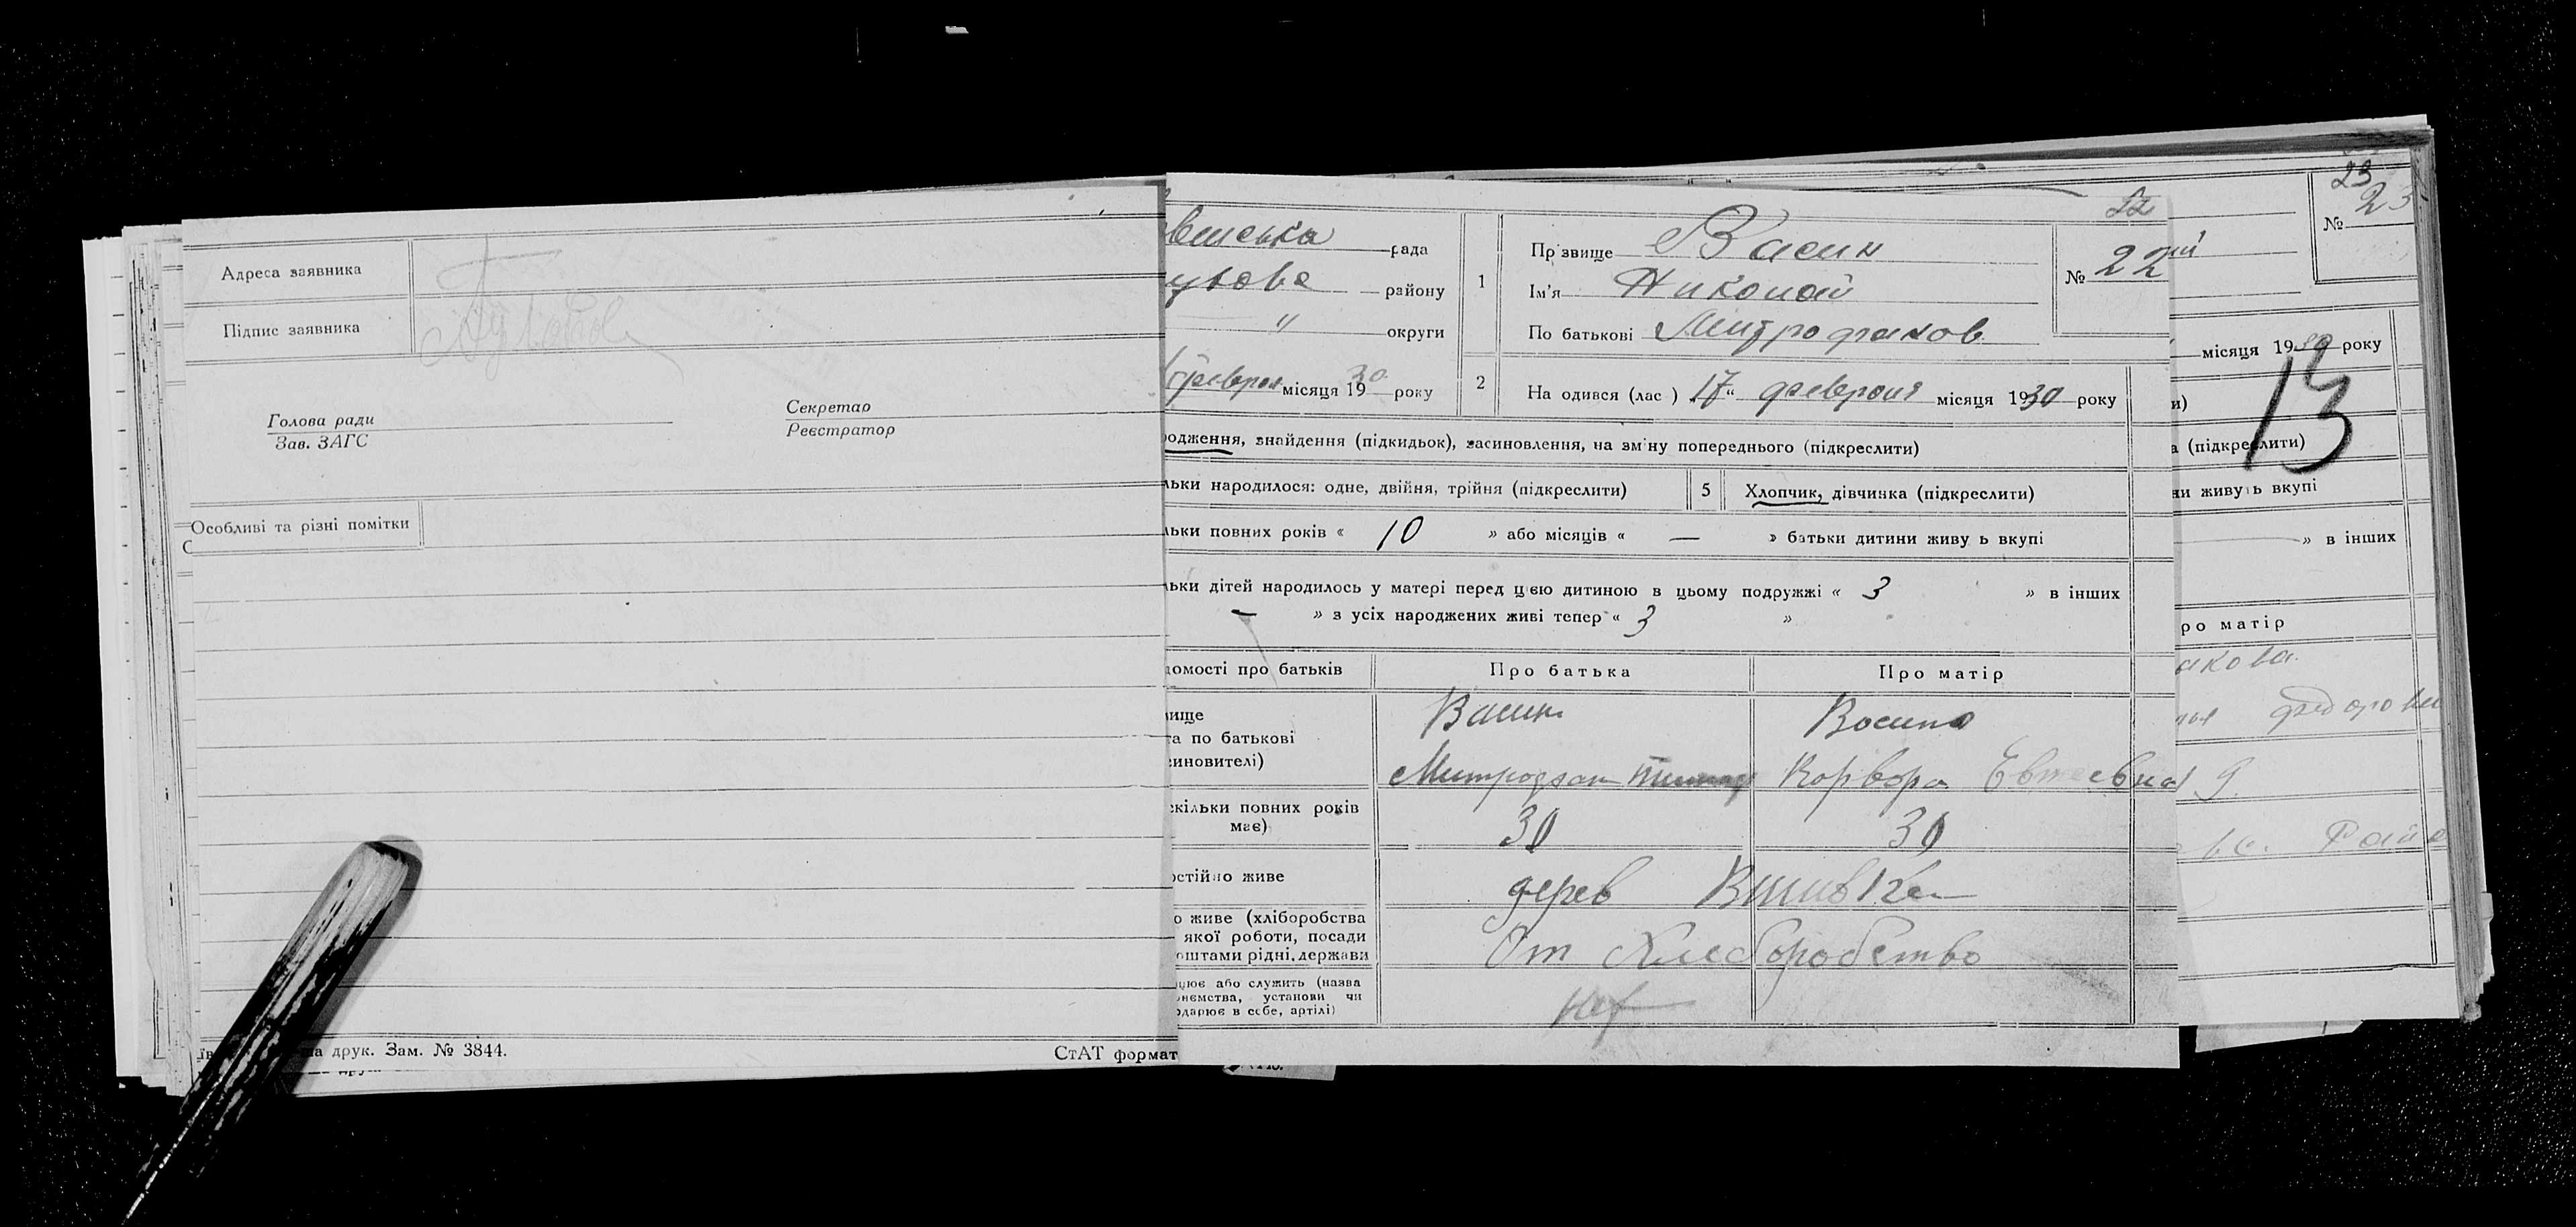 Адреса заявника
Підпис заявника
Голова ради
Зав. ЗАГС
Секретар
Реєстратор
Особливі та різні помітки
друк. Зам. № 3844.
СтАТ формат
рада
району
" округи
місяця 1930 року
1
Пр звище Васин
Ім'я Николай
По батькові Митрофанов
22
№ 22
2
На одився (лас ) „17“ февроля місяця 1930 року
одження, знайдення (підкидьок), засиновлення, на зм ну попереднього (підкреслити)
льки народилося: одне, двійня, трійня (підкреслити)
5 Хлопчик, дівчинка (підкреслити)
льки повних років « 10 » або місяців « — » батьки дитини живу ь вкупі
льки дітей народилось у матері перед цією дитиною в цьому подружжі « 3 » в інших
— » з усіх народжених живі тепер « 3 »
домості про батьків Про батька Про матір
вище
та по батькові
синовителі)
Васин
Митрофан
Восина
Корвора Евтеевна
скільки повних років
має)
30 30
остійно живе
дерев
о живе (хліборобства
якої роботи, посади
оштами рідні, держави
От Хлеборобство
цює або служить (назва
немства, установи чи
одарює в себе, артілі)
нет
23
№ 23
місяця 19 року
и)
13
а (підкреслити)
ни живуть вкупі
» в інших
ро матір